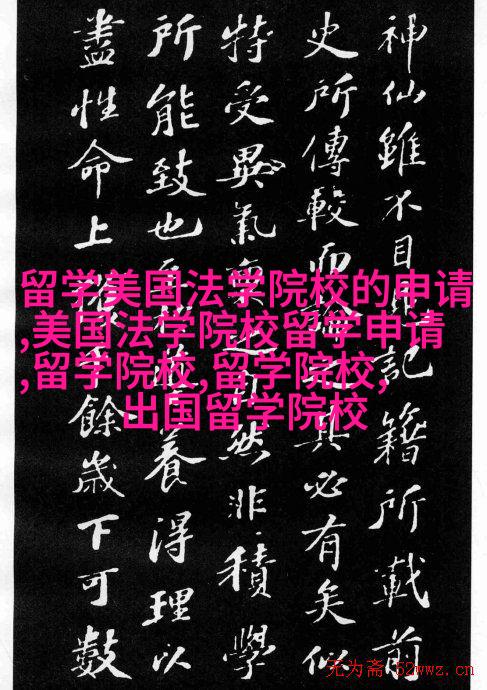 神仙雖不目記籍所載前
史所傳較而其必有矣似
特受異氣然非積學
所能致也養得理以
盡性命上餘歲下可數
留学美国法学院校的申请
,美国法学院校留学申请
,留学院校,留学院校,
出国留学院校
无为斋 52wwz.cn